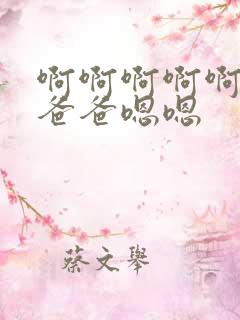 啊啊啊啊啊
爸爸嗯嗯
蔡文舉